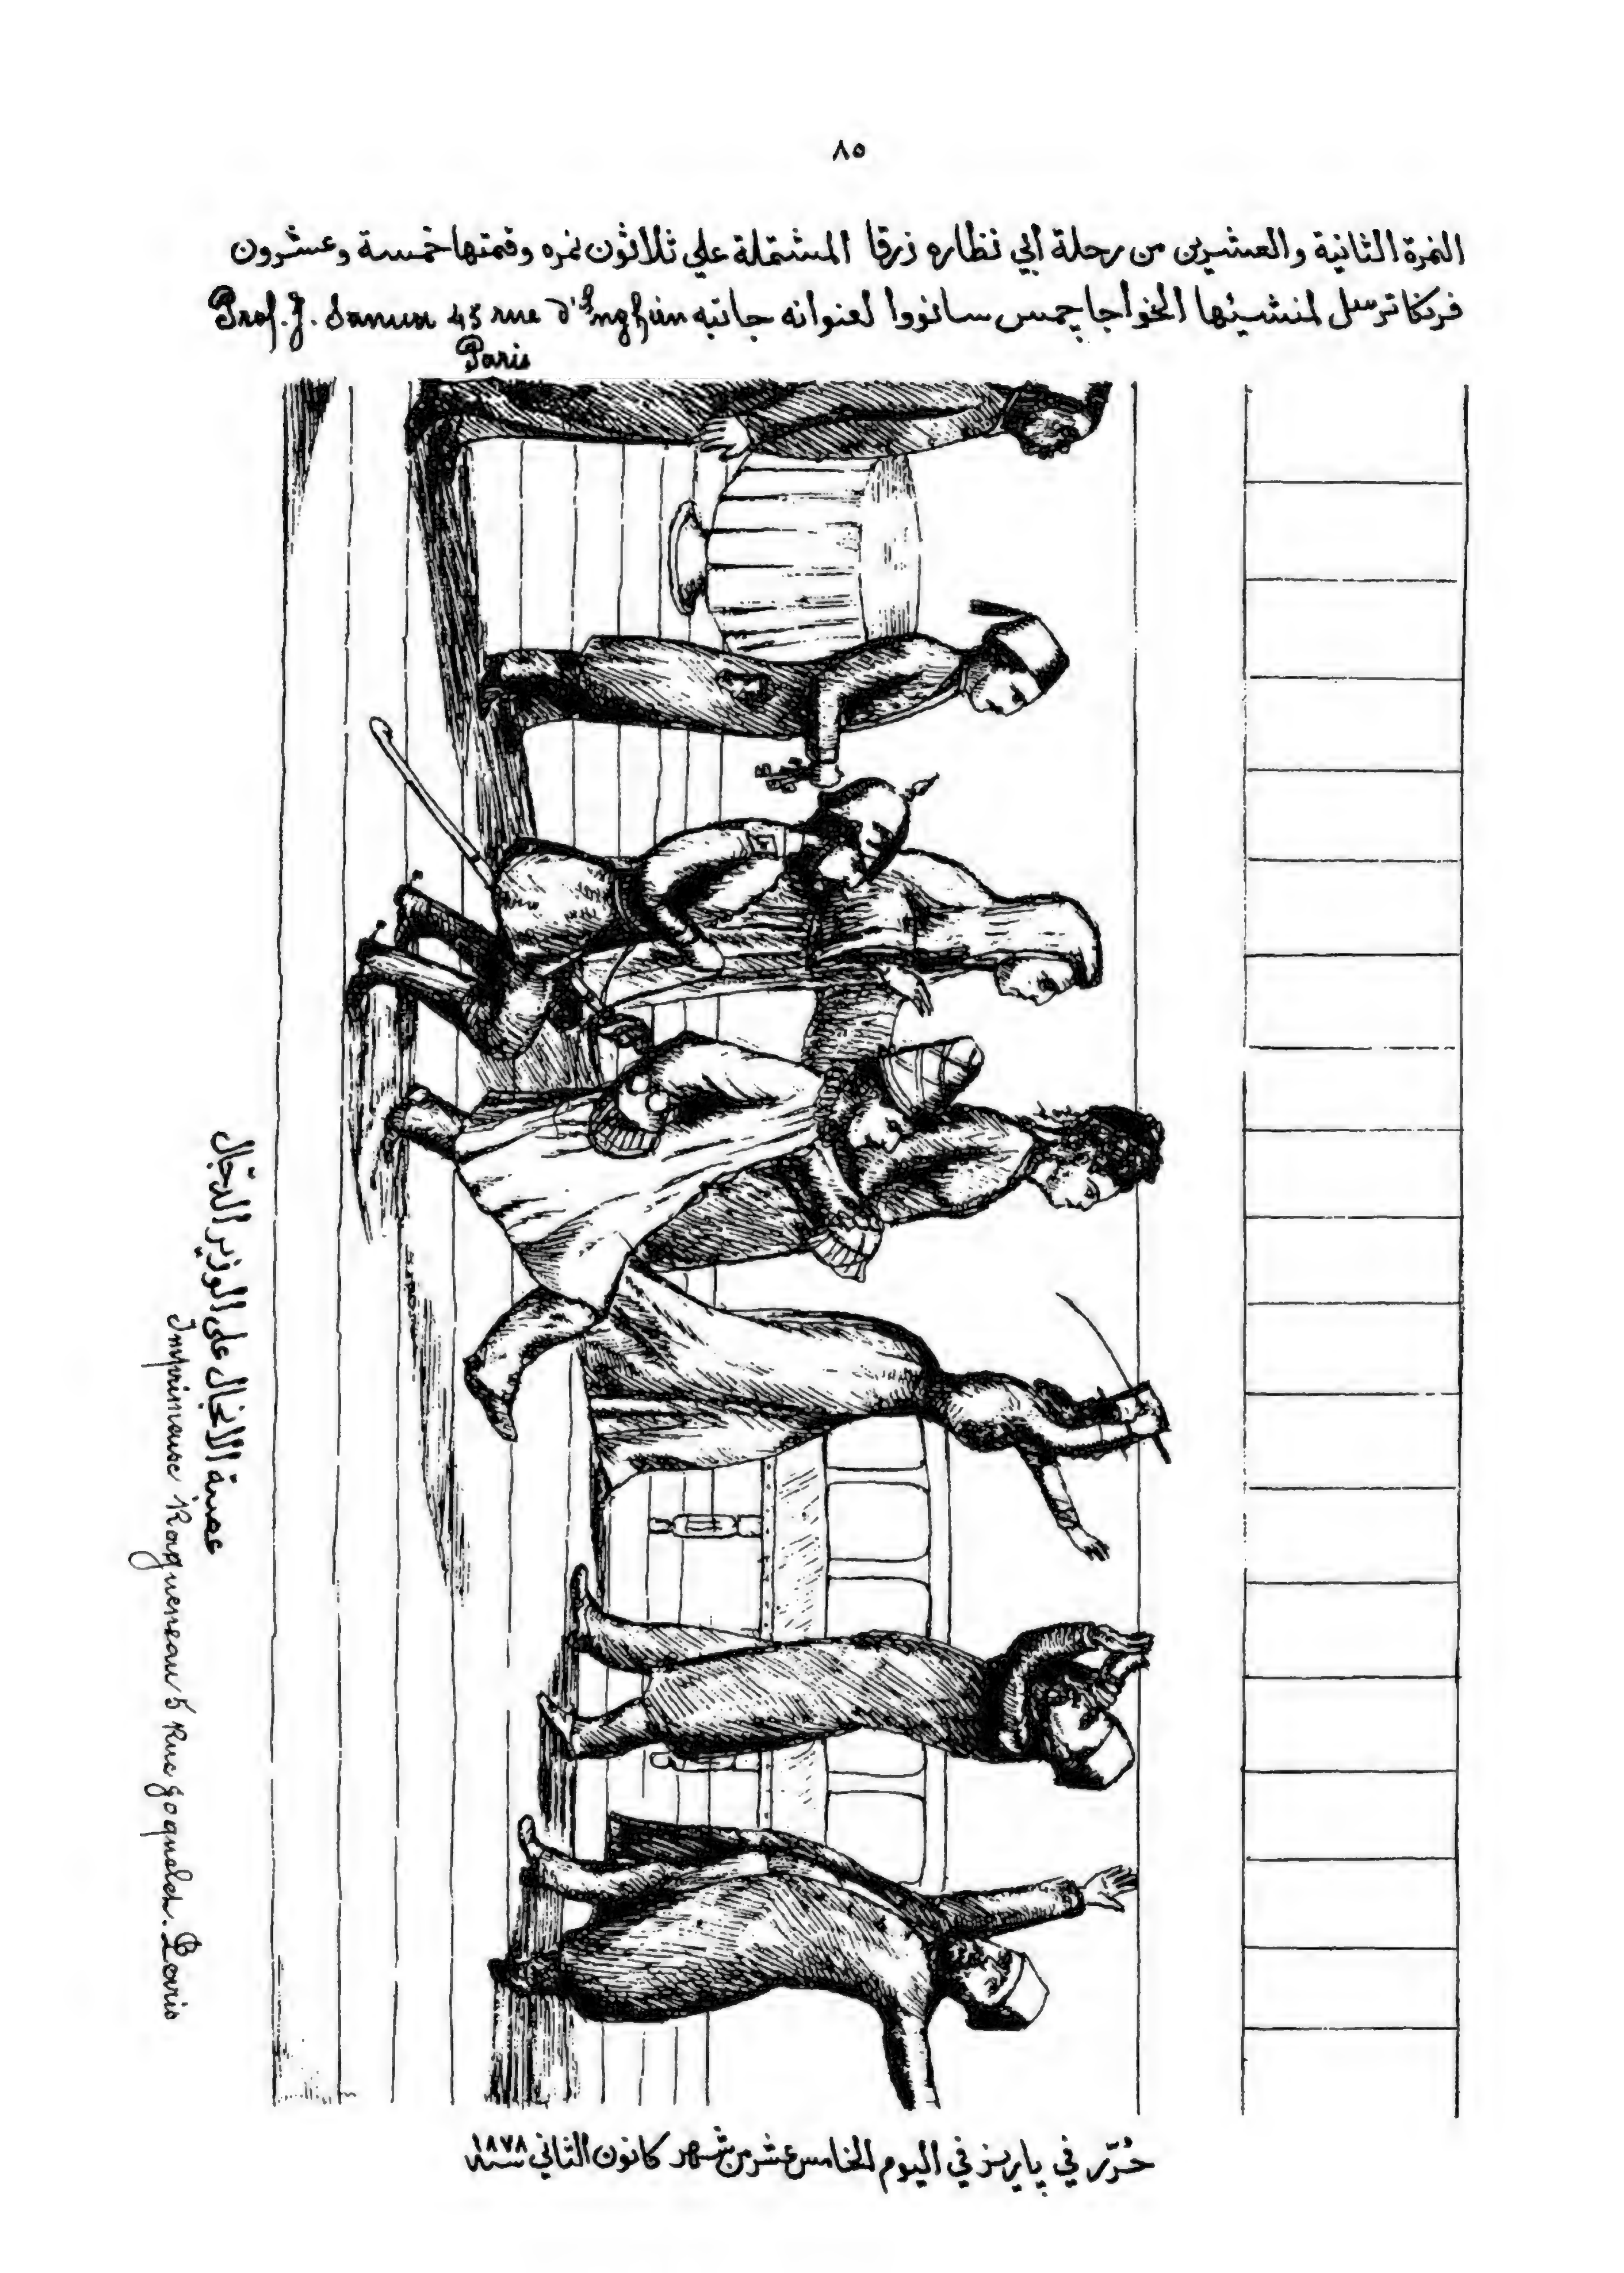 ٨٥
النمرة الثانية والعشرين من رحلة ابي نظاره زرقا المشتملة علي ثلاثون نمره وقمتها خمسة وعشرون
فرنكا ترسل لمنشيئها الخواجا جمس سانووا لعنوانه جانبه Prof. J. Sanua 43 rue d'Enghien
Paris
عصبة الانجال على الوزير الدجال
Imprimeuse Ragueneau 5 Rue Joquelet. Paris
حُرّر في پاريز في اليوم الخامس عشر من شهر كانون الثاني سنة ١٨٧٨